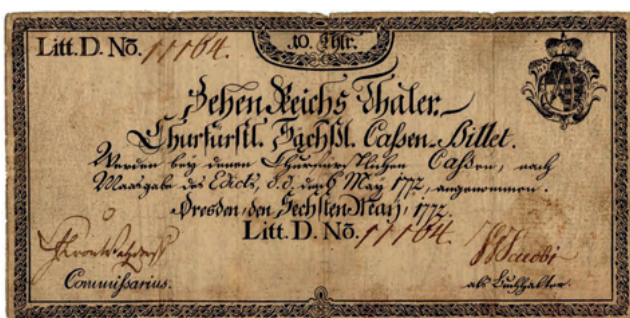 Litt. D. No. 11164.
10. Thlr.
Zehen Reichs Thaler.
Churfürstl. Sächßl. Caßen-Billet.
Werden bey denen Churfürstlichen Caßen, nach
Maasgabe des Edicts, d. d. den 6 May 1772, angenommen.
Dresden, den Sechsten May, 1772.
Litt. D. No. 11164.
Commißarius.
als Buchhalter.